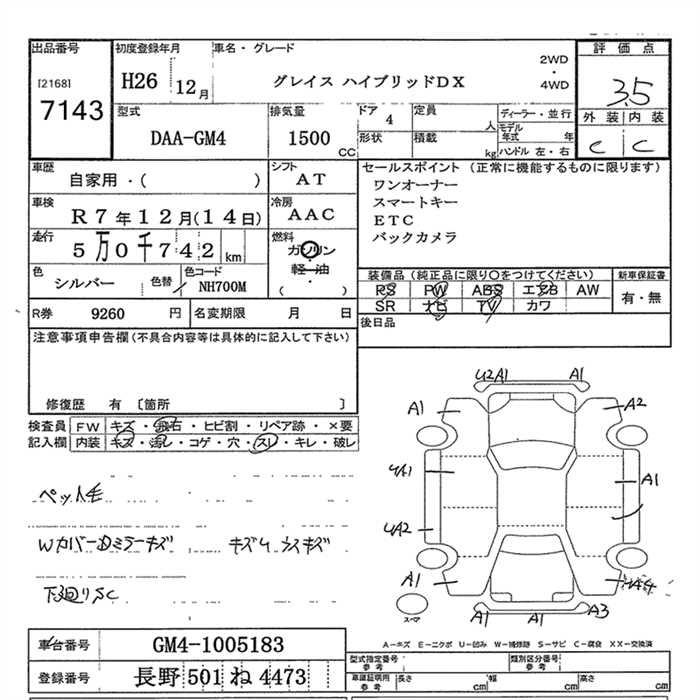 出品番号
[2168]
7143
初度登録年月
H26 12月
車名・グレード
グレイス ハイブリッドDX
2WD
・
4WD
評価点
3.5
外装 内装
C C
型式
DAA-GM4
排気量
1500 CC
ドア 4
形状
定員 人
積載 kg
ディーラー・並行
モデル年式 年
ハンドル 左・右
車歴
自家用・( )
シフト
AT
車検
R7年12月(14日)
冷房
AAC
走行
5万0千742 km
燃料
ガソリン
軽・油
・
( )
色
シルバー
色替
色コード
NH700M
R券 9260 円
名変期限 月 日
セールスポイント (正常に機能するものに限ります)
ワンオーナー
スマートキー
ETC
バックカメラ
装備品 (純正品に限り○をつけてください)
新車保証書
PS PW ABS エアB AW
有・無
SR ナビ TV カワ
後日品
注意事項申告欄(不具合内容等は具体的に記入して下さい)
修復歴 有 〔箇所 〕
検査員 FW キズ・飛石・ヒビ割・リペア跡・×要
記入欄 内装 キズ・汚レ・コゲ・穴・スレ・キレ・破レ
ペット毛
Wカバー ミラーキズ
下廻りSC
U2A1 A1
A1 A2
A1
UA2
A1
A1 A1 A3
スーマ
A−キズ E−ニクボ U−凹み W−補修跡 S−サビ C−腐食 XX−交換済
車台番号 GM4-1005183
登録番号 長野 501 ね 4473
型式指定番号 参考
類別区分番号 参考
車庫証明用 参考
長さ cm
幅 cm
高さ cm